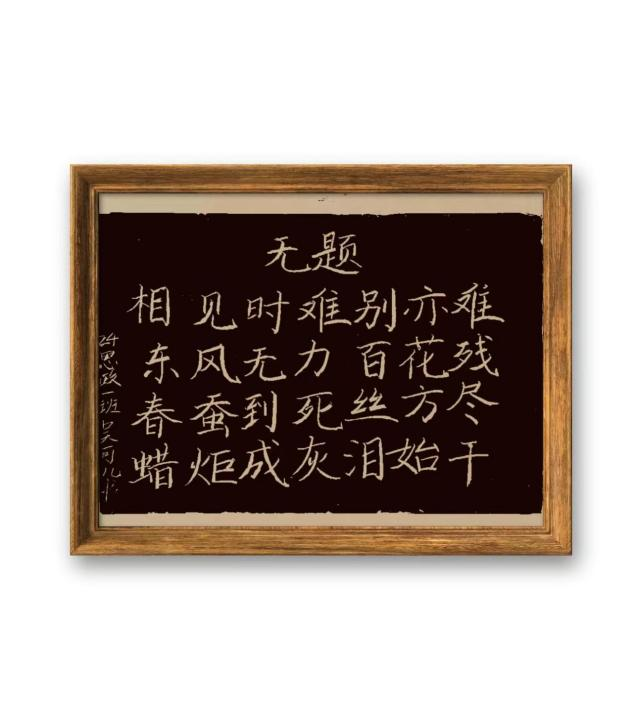 无题
相见时难别亦难
东风无力百花残
春蚕到死丝方尽
蜡炬成灰泪始干
24思政一班